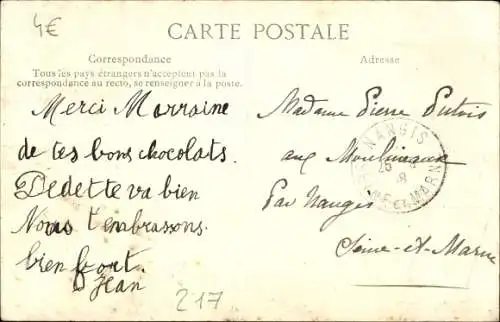 4€
CARTE POSTALE
Correspondance
Tous les pays étrangers n'acceptent pas la
correspondance au recto, se renseigner à la poste.
Merci Marraine
de tes bons chocolats.
Dedette va bien
Nous t'embrassons.
bien fort.
Jean
217
Adresse
Madame Pierre Putois
aux Moulineaux
Par Nangis
Seine-et-Marne
NANGIS
25
8
SEINE-ET-MARNE